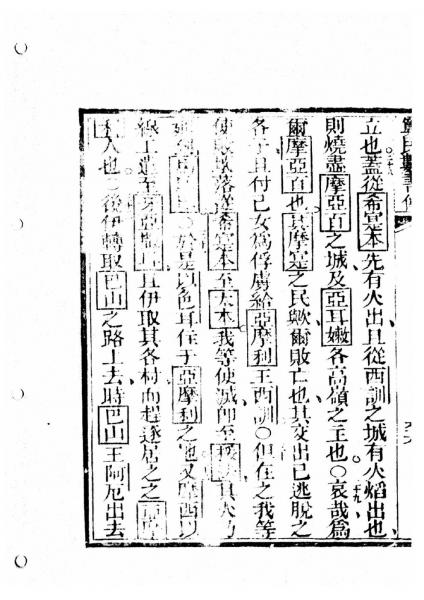 立也蓋從希寔本先有火出且從西訓之城有火焰出也
則燒盡摩亞百之城及亞耳嫩各高嶺之主也○哀哉爲
爾摩亞百也其摩寔之民歟爾敗亡也其交出已逃脫之
各子且付己女爲俘虜給亞摩利王西訓○但在之我等
使敗敵落從希寔本至大本我等使滅即至其火乃
○於是以色耳住于亞摩利之地又摩西以
線上遣至牙亞且伊取其各村而趕逐居之之亞摩
利人也○後伊轉取巴山之路上去時巴山王阿厄出去